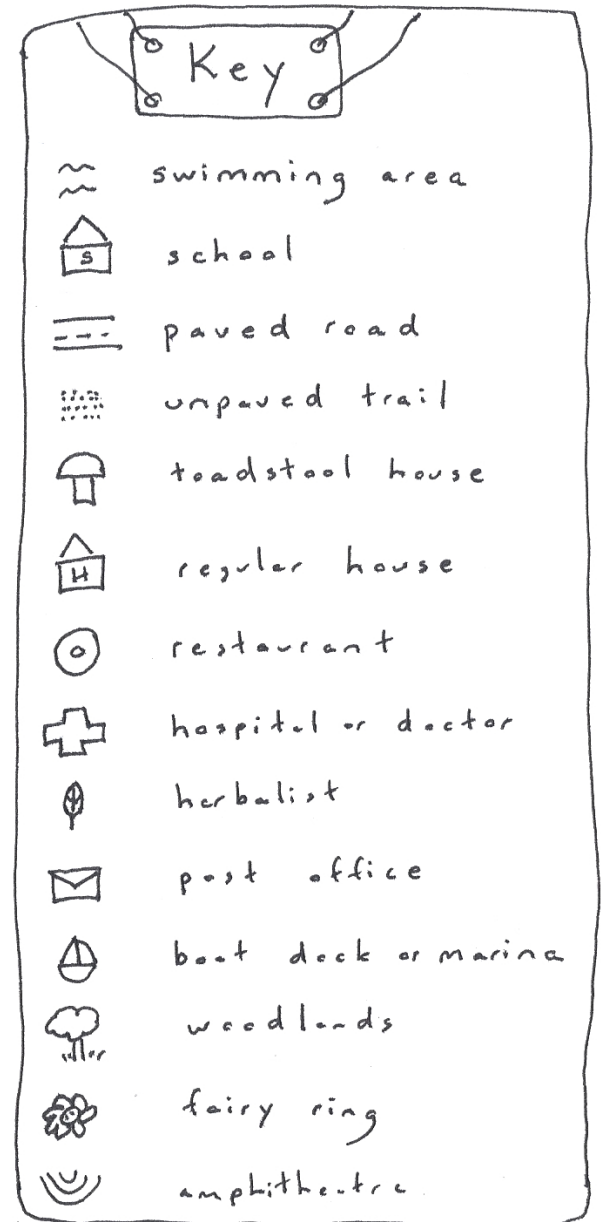 Key
swimming area
S
school
paved road
unpaved trail
toadstool house
H
regular house
restaurant
hospital or doctor
herbalist
post office
boat dock or marina
woodlands
fairy ring
amphitheatre